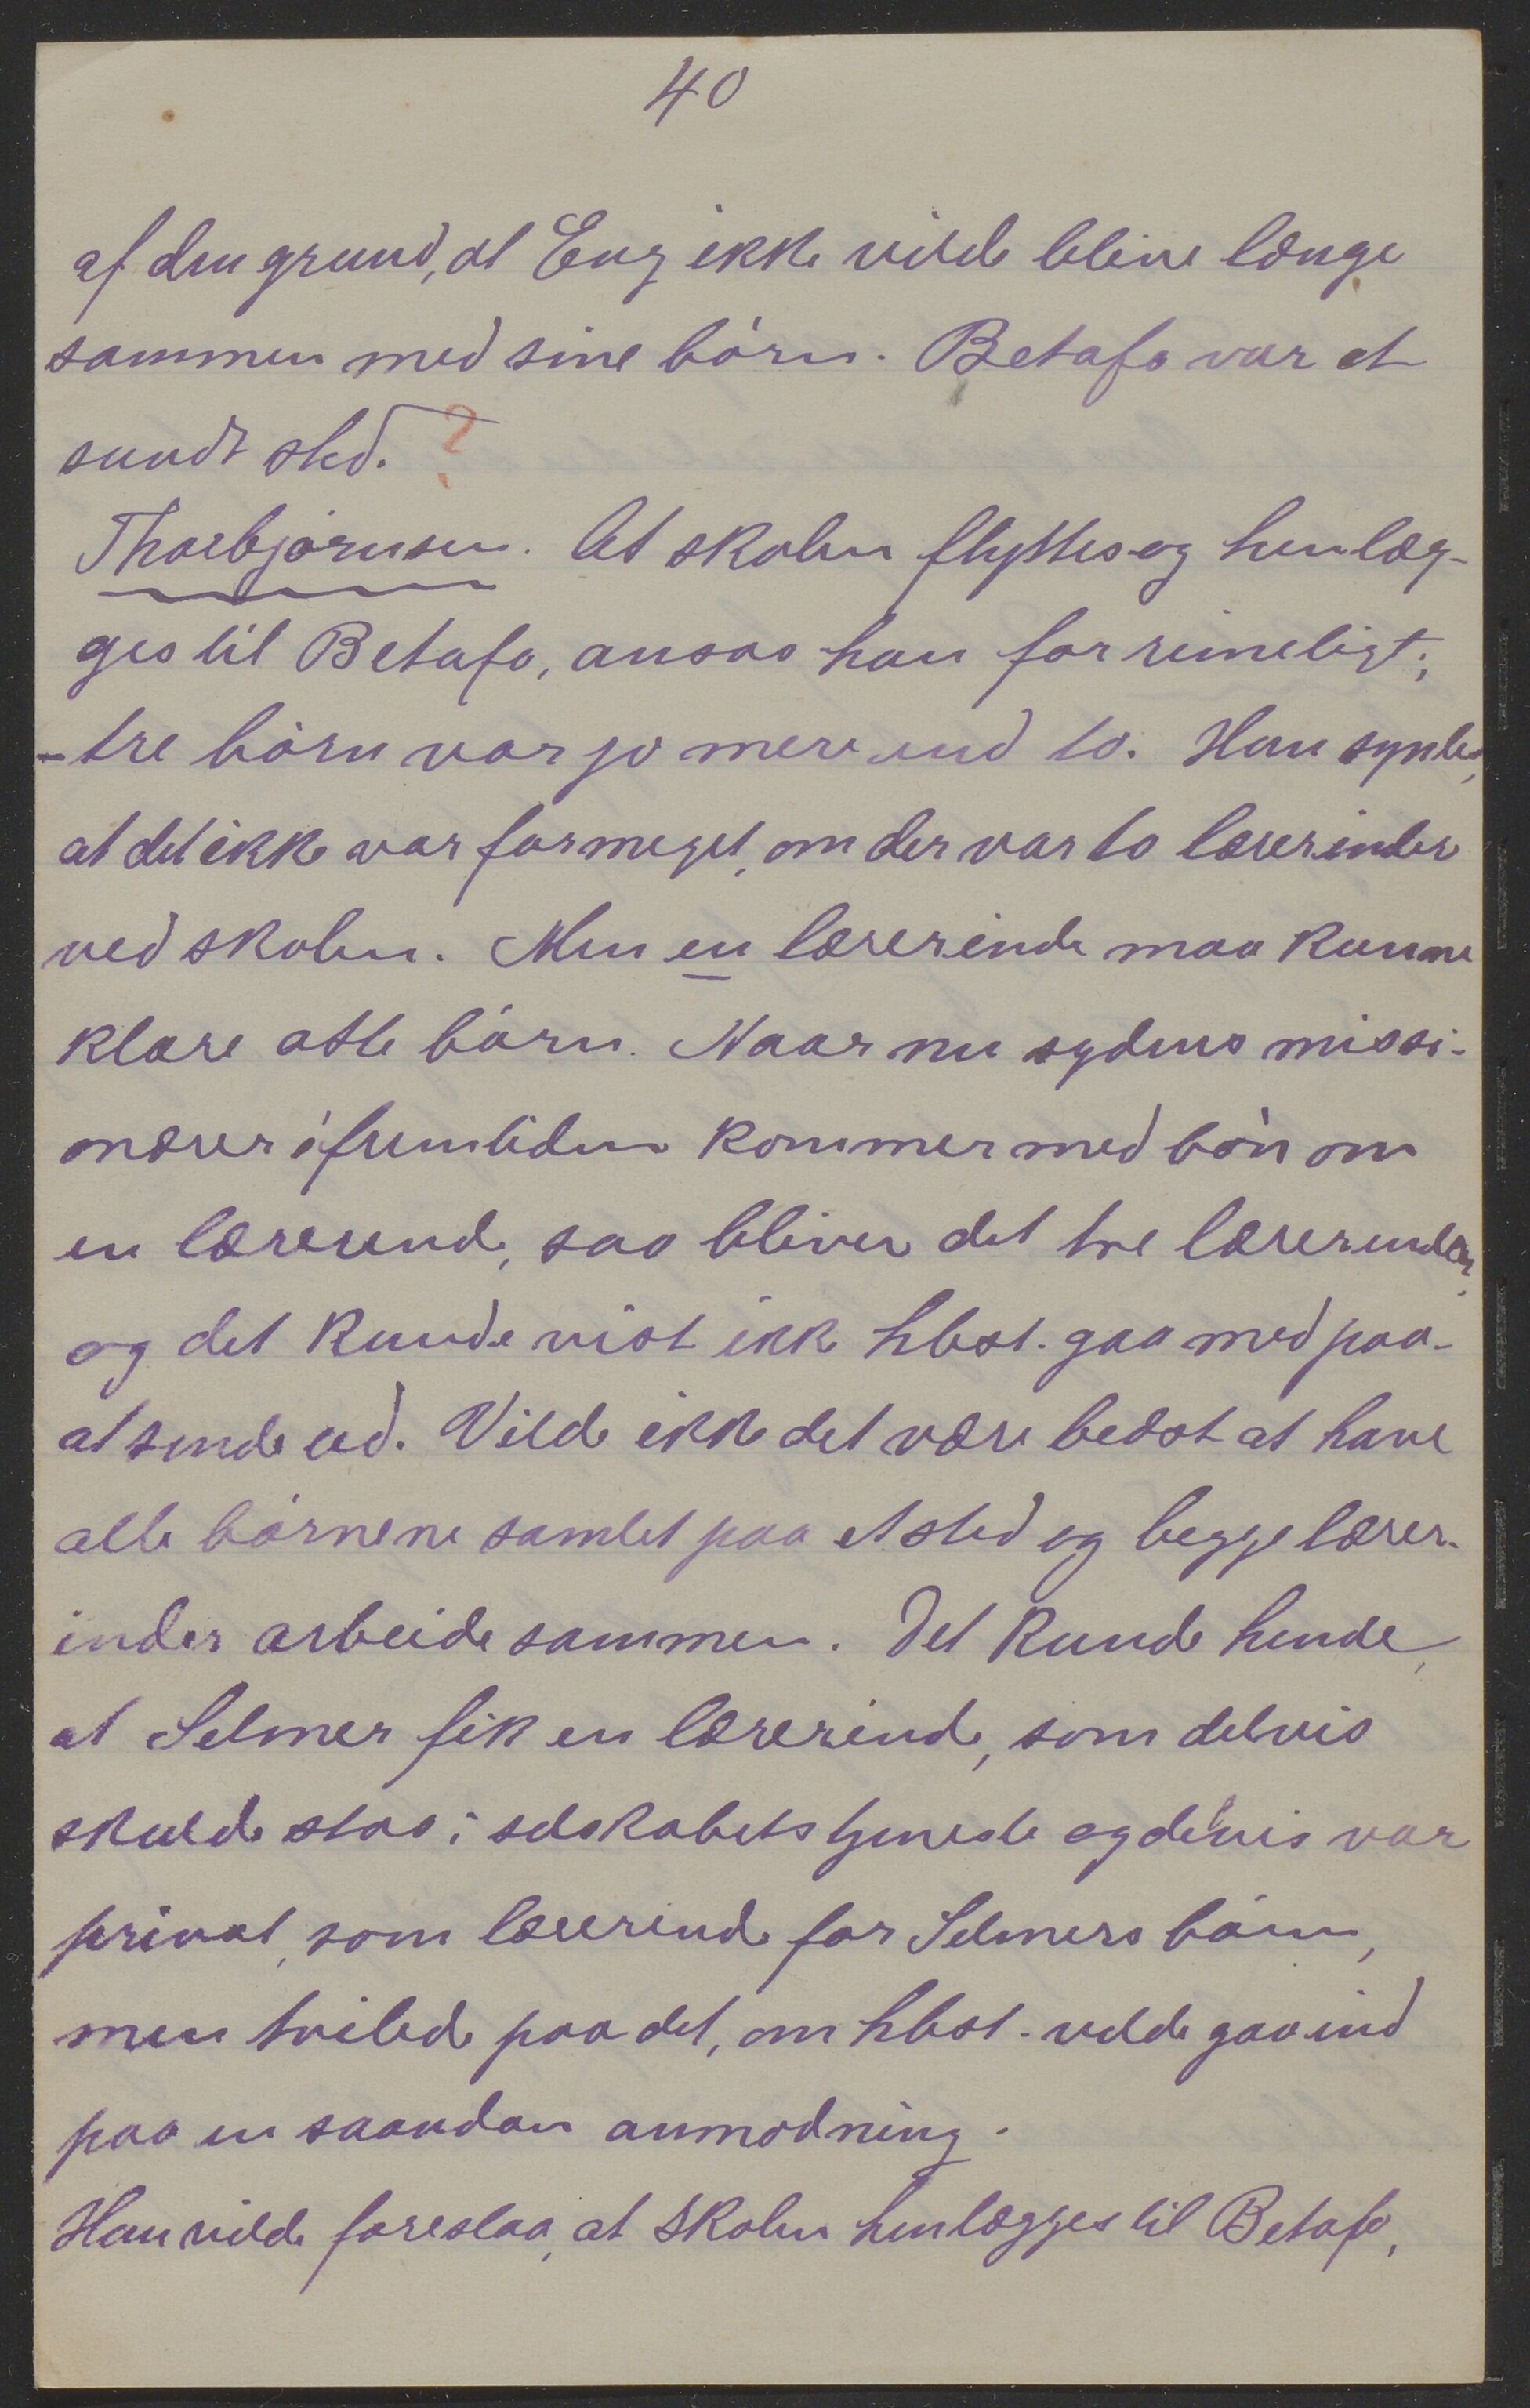 40
af den grund, at Eng ikke vilde blive længe
sammen med sine börn. Betafo var et
sundt sted. ?
Thorbjörnsen. At skolen flyttes og henlæg-
ges til Betafo, ansaa han for rimeligt;
- tre börn var jo mere end to. Han syntes,
at det ikke var for meget, om der var to lærerinder
ved skolen. Men en lærerinde maa kunne
klare otte börn. Naar nu sydens missi-
onærer i fremtiden kommer med bön om
en lærerinde, saa bliver det tre lærerinder,
og det kunde vist ikke hbst. gaa med paa
at sende ud. Vilde ikke det være bedst at have
alle börnene samlet paa et sted og begge lærer-
inder arbeide sammen. Det kunde hende,
at Selmer fik en lærerinde, som delvis
skulde staa i selskabets tjeneste og delvis var
privat, som lærerinde for Selmers börn,
men tvilede paa det, om hbst. vilde gaa ind
paa en saadan anmodning.
Han vilde foreslaa, at skolen henlægges til Betafo,